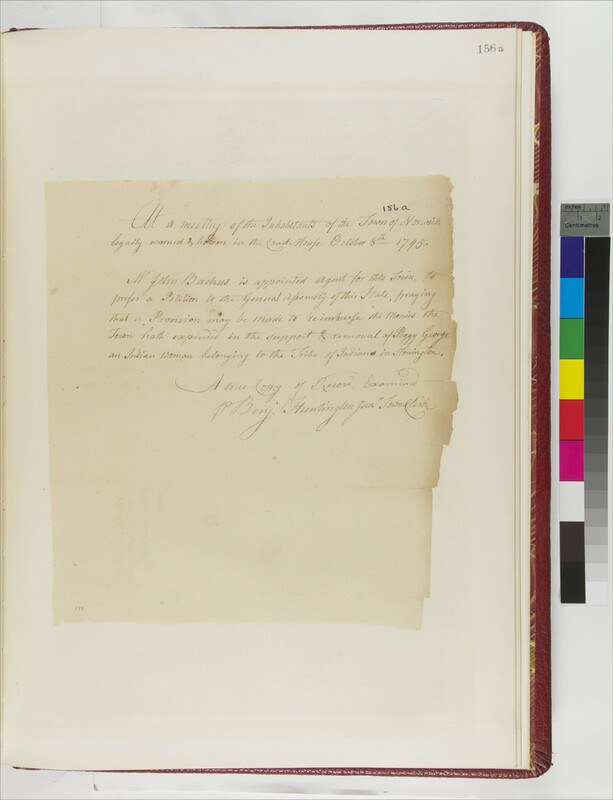 156a
156a
At a meeting of the Inhabitants of the Town of Norwich
legally warned & holden in the Court House October 8th 1795.
Mr John Backus is appointed Agent for this Town to
prefer a Petition to the General Assembly of this State, praying
that a Provision may be made to reimburse the Monies the
Town hath expended in the support & removal of Peggy George
an Indian Woman belonging to the Tribe of Indians in Stonington.
A true Copy of Record Examined
Pr Benj. Huntington Junr Town Clerk
Inches
Centimetres